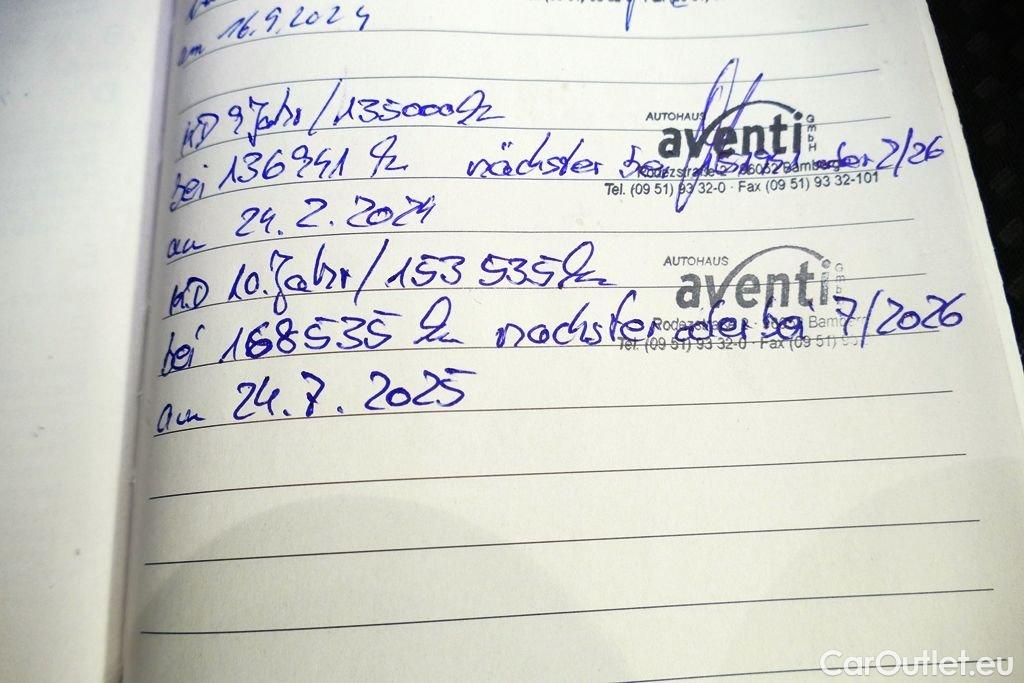 am 16.9.2024
KD 9 Jahr / 135000 km
AUTOHAUS
aventi GmbH
bei 136941 km nächster bei 151941 oder 2/26
Rodezstraße 2 · 96052 Bamberg
Tel. (09 51) 93 32-0 · Fax (09 51) 93 32-101
am 24.2.2024
KD 10. Jahr / 153 535 km
AUTOHAUS
aventi GmbH
bei 168535 km nächster oder bei 7/2026
Rodezstraße 2 · 96052 Bamberg
Tel. (09 51) 93 32-0 · Fax (09 51) 93
am 24.7.2025
CarOutlet.eu